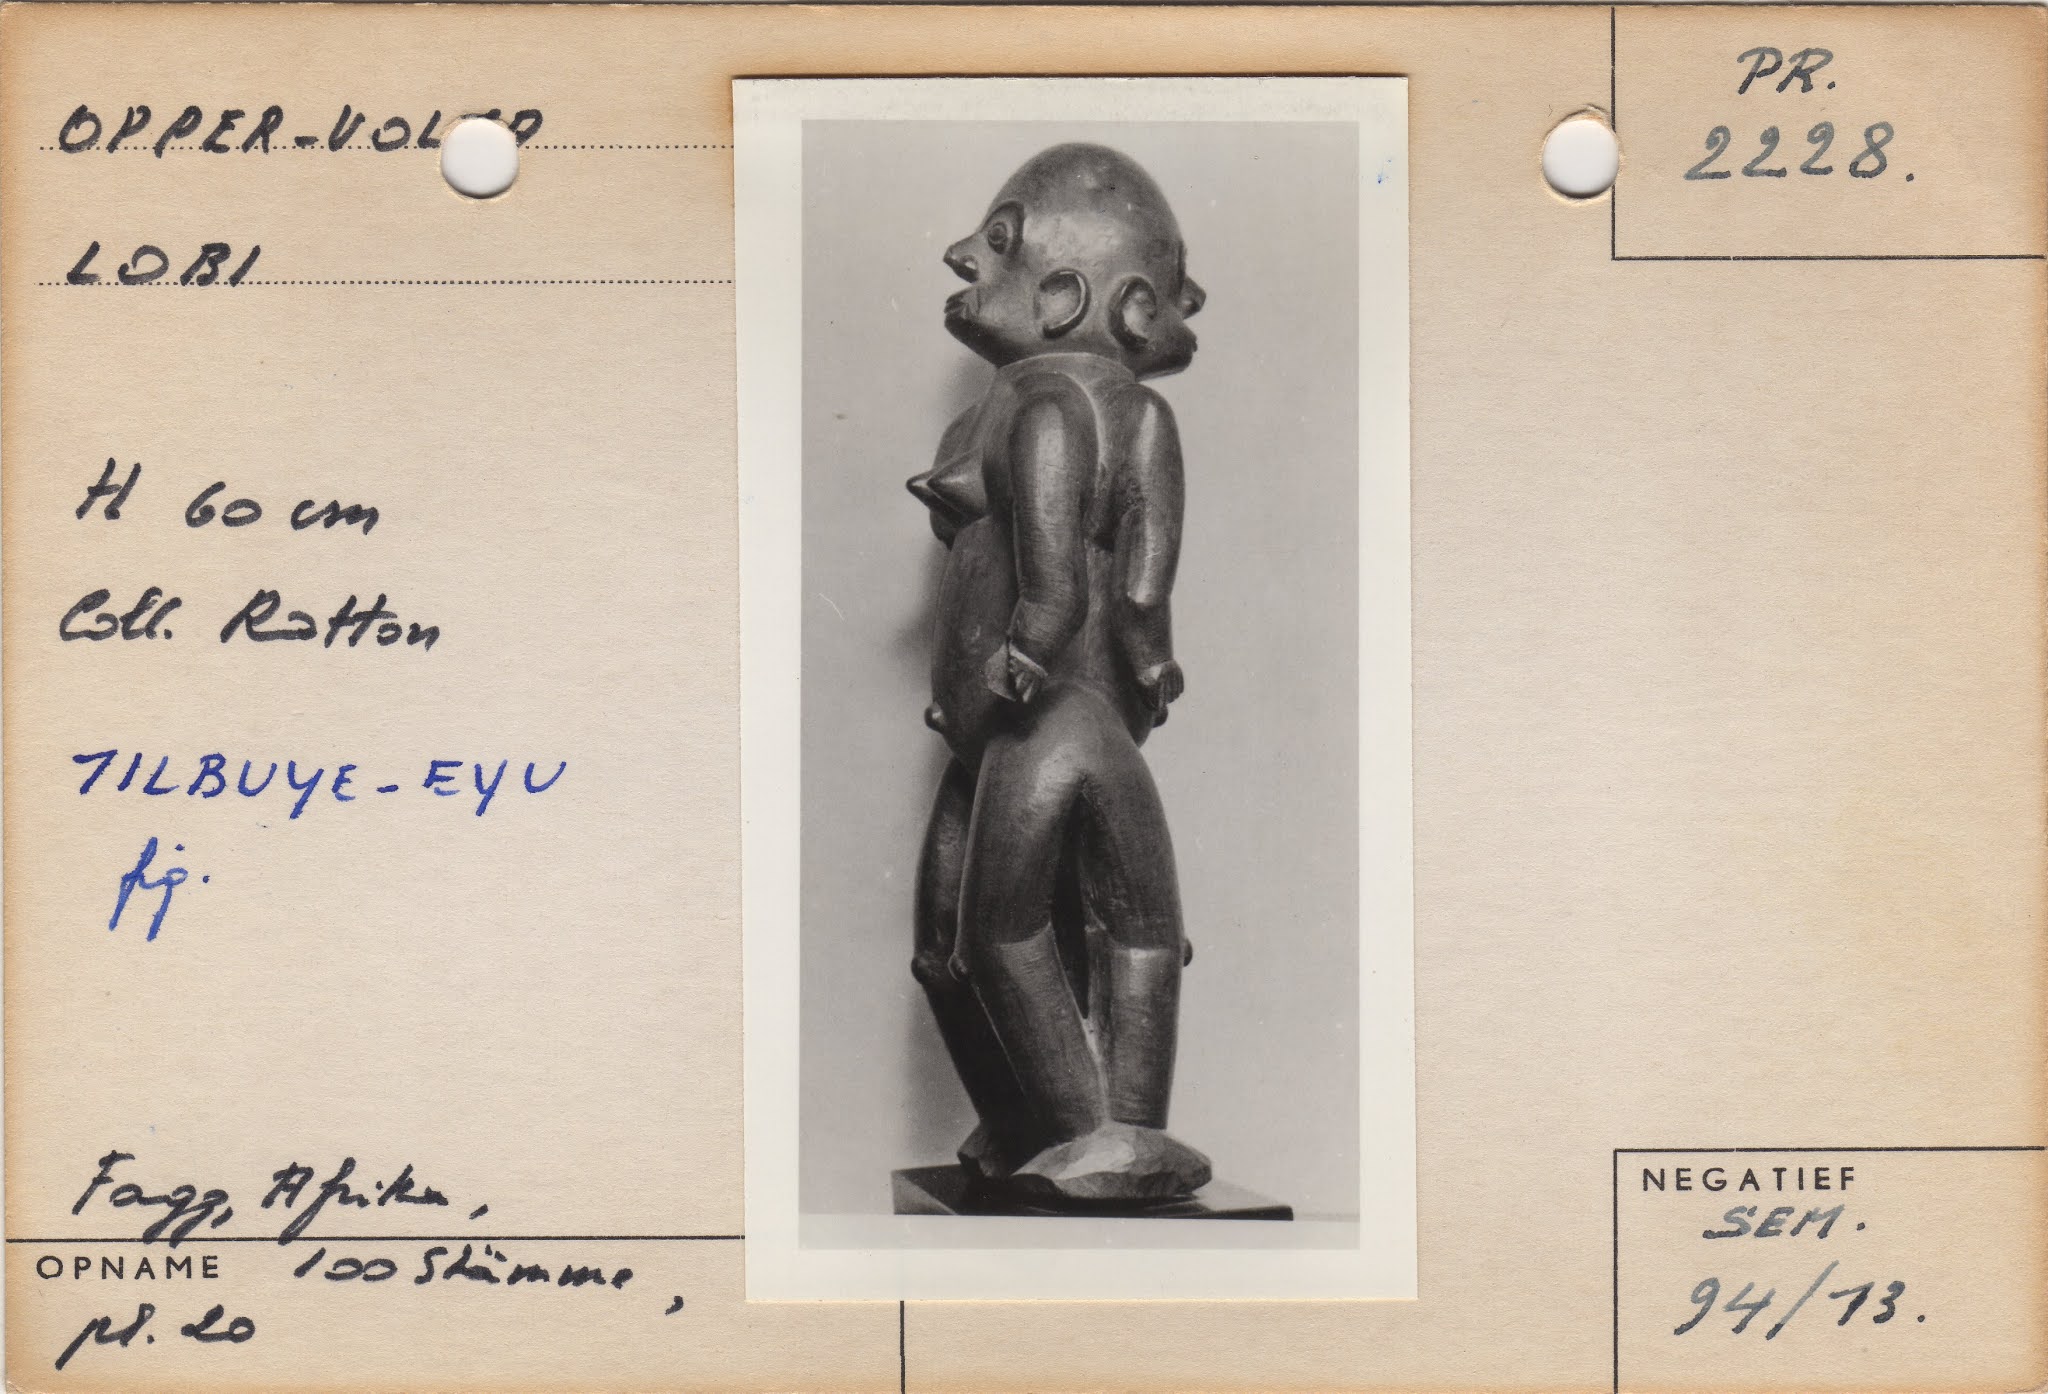 OPPER-VOLTA
PR.
2228.
LOBI
H 60 cm
Coll. Ratton
TILBUYE-EYU
fig.
Fagg, Afrika,
OPNAME 100 Stämme,
pl. 20
NEGATIEF
SEM.
94/13.